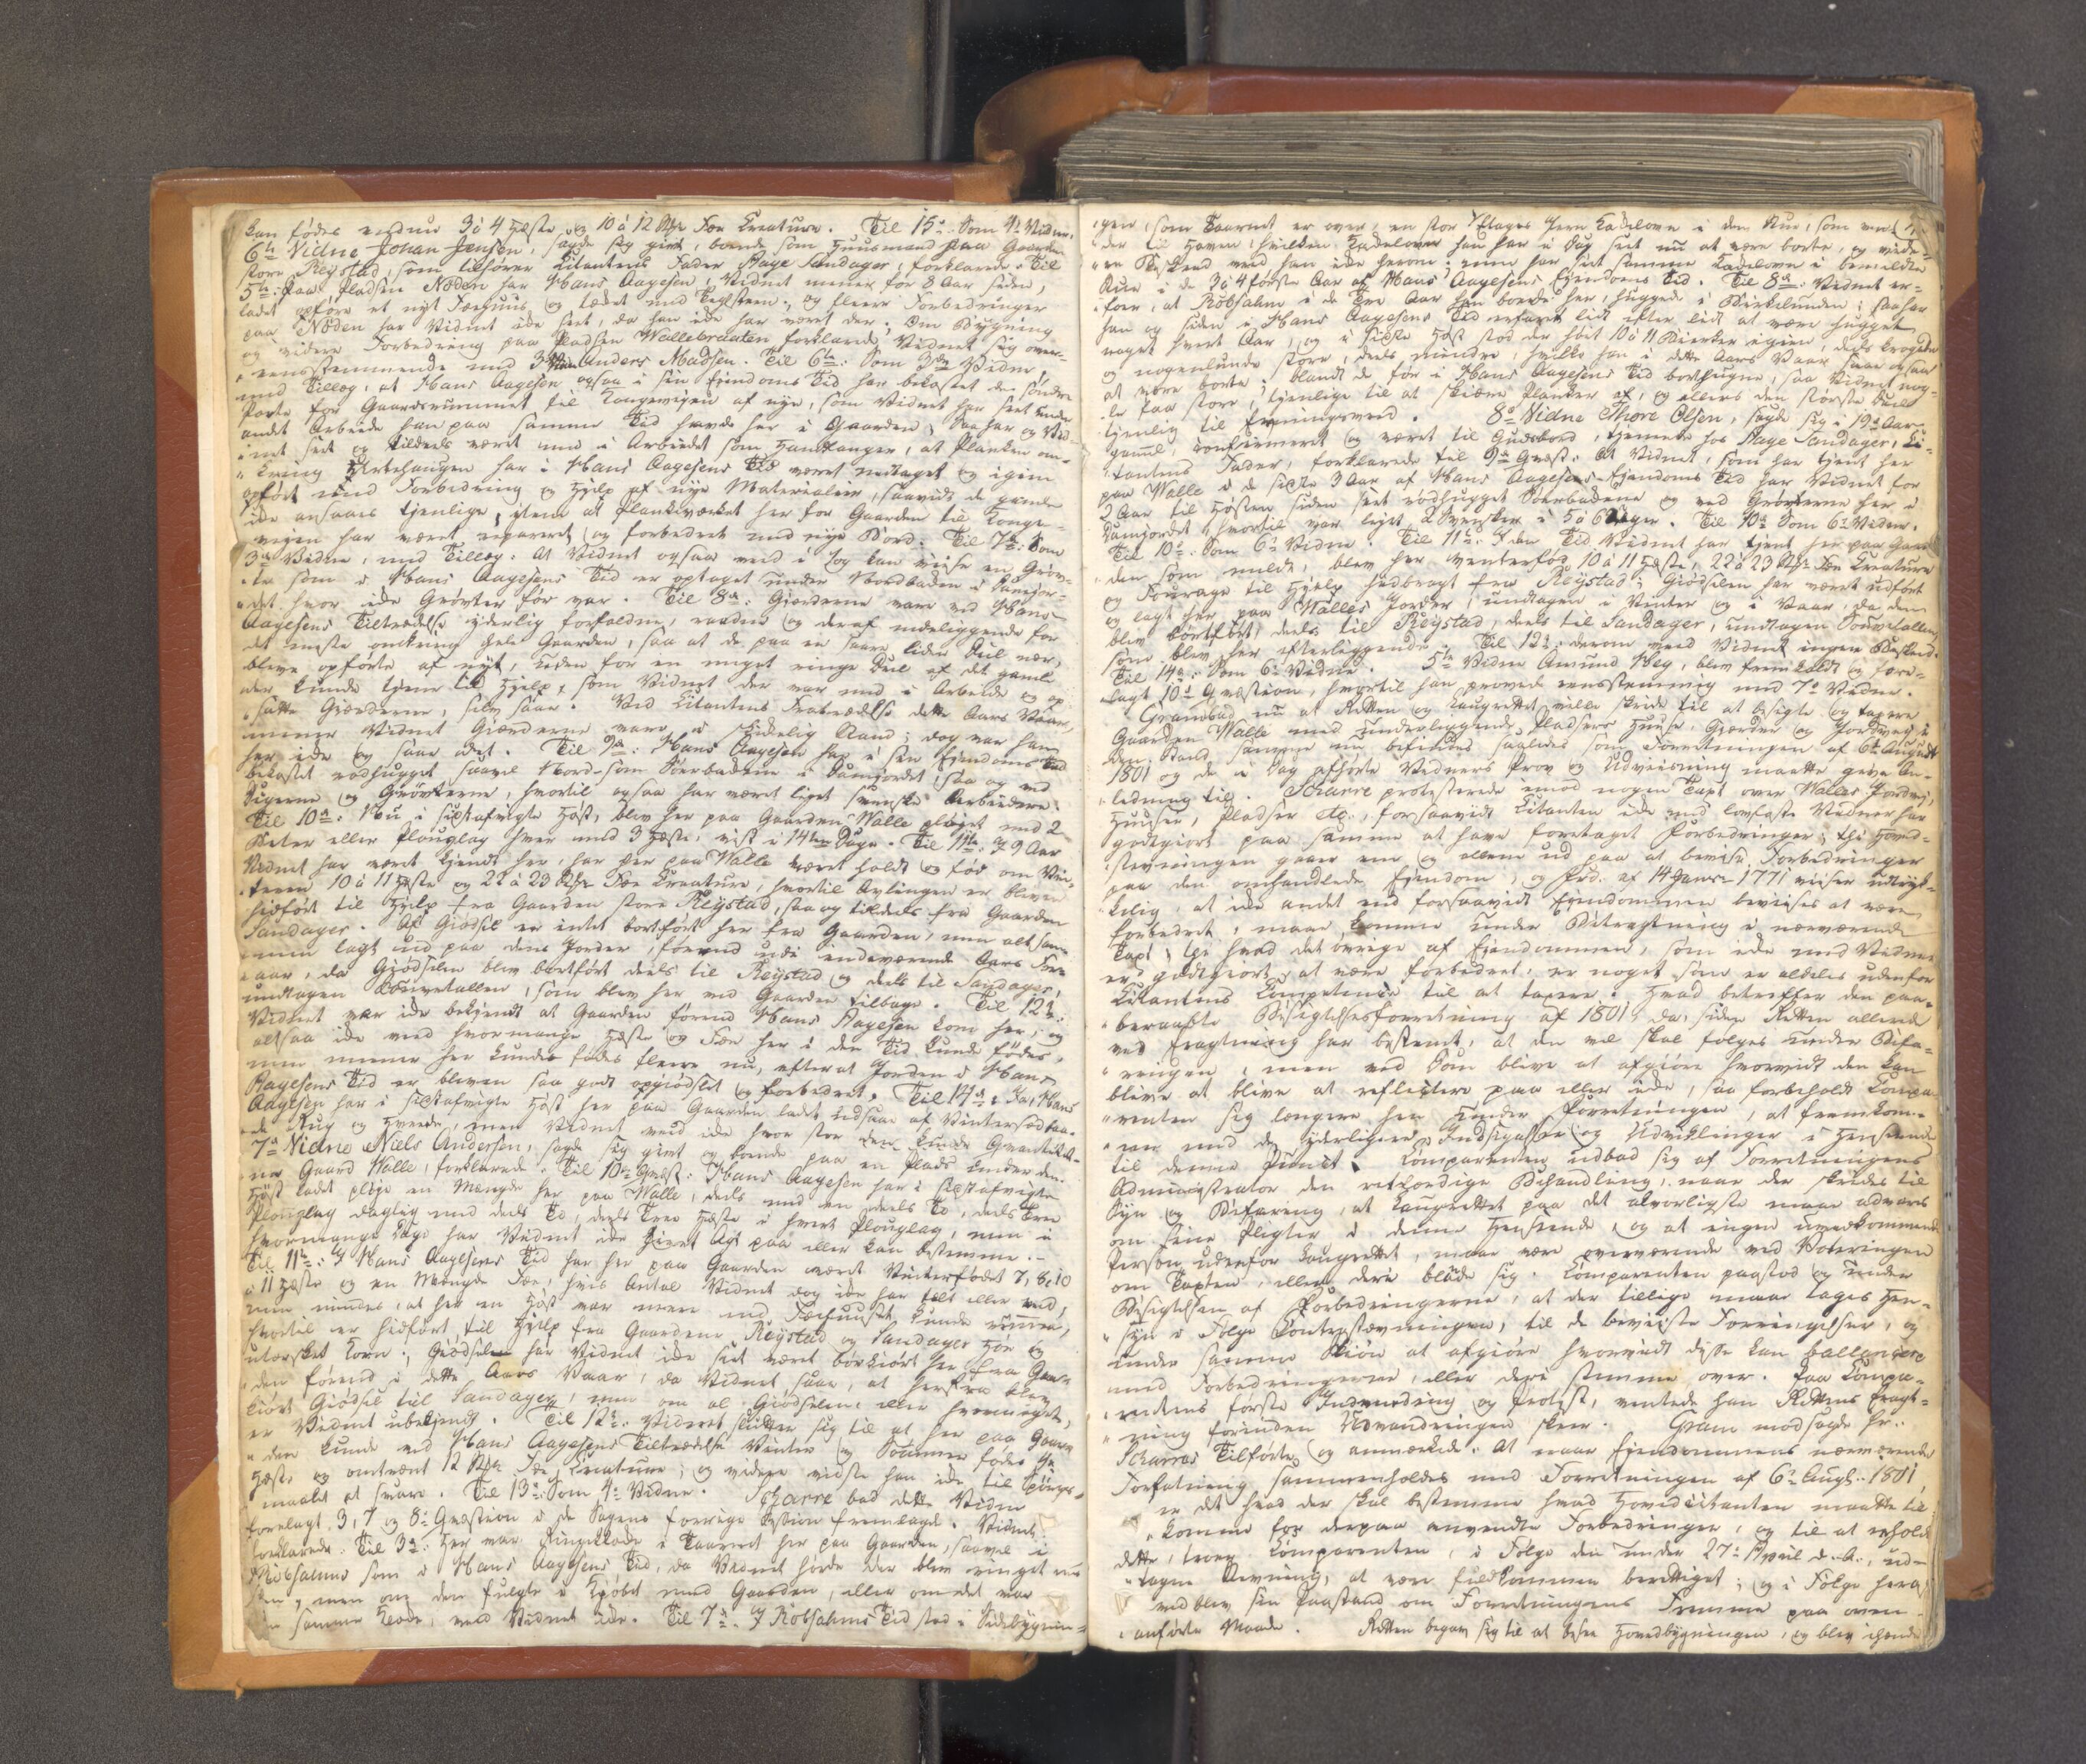 kan födes endnu 3 à 4 Heste og 10 à 12 Stkr Fæe Creature. Til 15de Som 4de Vidne.
6te Vidne Johan Jensen, sagde sig givt, boende som Huusmand paa Gaarden
store Reÿstad, som tilhører Citantens Fader Aage Sandager, forklarede: Til
5te: Paa Pladsen Næden har Hans Aagesen, Vidnet mener for 8 Aar siden,
ladet opføre et nyt Fæehuus og tædet med Teglsteen, og fleere Forbedringer
paa Næden har Vidnet ikke seet, da han ikke har været der; Om Bygning
og videre Forbedring paa Pladsen Wallebraaten forklarede Vidnet sig over-
eensstemmende med 3die Vidne Anders Madsen. Til 6te: Som 3die Vidne,
med Tillæg, at Hans Aagesen ogsaa i sin Ejendoms Tid har bekostet den söndre
Porte for Gaardsrummet til Kongeveÿen af nÿe, som Vidnet har seet under
andet Arbeide han paa samme Tid havde her i Gaarden; Saa har og Vid-
net seet og tildeels været med i Arbeidet som Handlanger, at Planken om-
kring Urtehaugen har i Hans Aagesens Tid været nedtaget og igien
opført med Forbedring og Hjelp af nÿe Materialier, saavidt de gamle
ikke ansaaes tjenlige, item at Plankeværket her for Gaarden til Konge-
veÿen har været repareret og forbedret med nÿe Bord. Til 7de: Som
3die Vidne, med Tillæg: At Vidnet ogsaa veed i og kan viise en Gröv-
te som i Hans Aagesens Tid er optaget under Nordbaden i Damjor-
det hvor ikke Gröfter för var. Til 8de: Gjærderne vare ved Hans
Aagesens Tiltrædelse ÿderlig forfaldne, raadne og deraf nedeliggende for
det meste omkring hele Gaarden, saa at de paa en saare liden Deel nær,
bleve opförte af nÿt, uden for en meget ringe Deel af det gamle
der kunde tjene til Hjelp, som Vidnet der var med i Arbeide og op-
satte Gjærderne, selv saae. Ved Citantens Fratrædelse dette Aars Vaar,
mener Vidnet Gjærderne vare i skikkelig Stand; dog var han
her ikke og saae det. Til 9de: Hans Aagesen har i sin Ejendoms Tid
bekostet rödhugget saavel Nord- som Söerbadene i Damjordet, saa og ved
Digerne og Gröfterne, hvortil ogsaa har været leÿet svenske Arbeidere.
Til 10de: Nu i sidstafvigte Höst, blev her paa Gaarden Walle pløiet med 2
Beter eller Plouglag hver med 3 Heste, vist i 14ten Dage. Til 11te: I 9 Aar
Vidnet har været kjendt her, har her paa Walle været holdt og fød om Vin-
teren 10 à 11 Heste og 22 à 23 Stkr Fæe Creature, hvortil Avlingen er bleven
hidført til Hjelp fra Gaarden store Reÿstad, saa og tildeels fra Gaarden
Sandager. Af Giødsel er intet bortført her fra Gaarden, men alt sam-
men lagt ud paa dens Jorder, førend udi indeværende Aars For-
aar, da Giødselen blev bortført deels til Reÿstad og deels til Sandager,
undtagen Souvetallen, som blev her ved Gaarden tilbage. Til 12te:
Vidnet var ikke bekjendt at Gaarden førend Hans Aagesen kom her, og
altsaa ikke veed hvormange Heste og Fæe her i den Tid kunde fødes,
men mener her kundes fødes fleere nu, efterat Jorden i Hans
Aagesens Tid er bleven saa godt opgiødslet og forbedret. Til 14de: Ja, Hans
Aagesen har i sidstafvigte Höst her paa Gaarden ladet udsaae af Vintersæd saa-
de Rug og Hvede, men Vidnet veed ikke hvor stor den kunde Qvantitet.
7de Vidne Niels Andersen, sagde sig givt og boende paa en Plads under den-
ne Gaard Walle, forklarede: Til 10de Qvæst: Hans Aagesen har i sidstafvigte
Höst ladet pløje en Mængde her paa Walle, deels med en deels To, deels Tree
Plouglag daglig med deels To, deels Tree Heste i hvert Plouglag, men i
hvormange Dage har Vidnet ikke givet Agt paa eller kan bestemme.
Til 11te: I Hans Aagesens Tid har her paa Gaarden været Vinterfödet 7, 8, 10
à 11 Heste og en Mængde Fæe, hvis Antal Vidnet dog ikke har talt eller veed,
men mindes, at her en Höst var mere end Fæehuuset kunde rumme,
hvortil er hidført til Hjelp fra Gaardene Reÿstad og Sandager Høe og
utærsket Korn; Giødselen har Vidnet ikke seet været borkiørt her fra Gaar-
den førend i dette Aars Vaar, da Vidnet saae, at herfra blev
kiørt Giødsel til Sandager, men om al Giødselen, eller hvormeget,
er Vidnet ubekjendt. Til 12te: Vidnet skiötter sig til at her paa Gaar-
den kunde ved Hans Aagesens Tiltrædelse Vinter og Sommer fødes
Heste og omtrent 12 Stkr Fæe Creature; og videre vidste han ikke til Spörgs-
maalet at svare. Til 13de: Som 4de Vidne. Scharre bad dette Vidne
forelagt 3, 7 og 8de Qvæstion i de Sagens forrige Session fremlagde. Vidnet
forklarede: Til 3die: Her var Ringeklokke i Taarnet her paa Gaarden, saavel i
Robsahms som i Hans Aagesens Tid, da Vidnet hørde der blev ringet med
den, men om den fulgte i Kjøbet med Gaarden, eller om det var
den samme Klokke, veed Vidnet ikke. Til 7de: I Robsahms Tid stod i Sidebÿgnin-
gen, som Taarnet er over, en stor 2 Etages Jern Kakelovn i den Stue, som vend-
der til Haven, hvilken Kakelovn han har i Dag seet nu at være borte, og vide-
re Beskeed veed han ikke herom; men har seet samme Kakelovn i bemeldte
Stue i de 3 à 4 første Aar af Hans Aagesens Ejendoms Tid. Til 8de: Vidnet er-
foer, at Robsahm i de Tre Aar han boede her, huggede i Birkelunden; saa har
han og siden i Hans Aagesens Tid erfaret lidt efter lidt at være hugget
noget hvert Aar, og i sidste Höst stod der höit 10 à 11 Birker igien, deels krogede
og nogenlunde store, deels mindre, hvilke han i dette Aars Vaar saae ogsaa
at være borte; blandt de før i Hans Aagesens Tid borthugne, saa Vidnet nog-
le faa store, tjenlige til at skiære Planker af, og ellers den største Deel
tjenlig til Frønningsveed. 8de Vidne Thore Olsen, sagde sig i 19de Aar
gammel, confirmeret og været til Gudsbord, tjenende hos Aage Sandager, Ci-
tantens Fader, forklarede til 9de Qvæst: At Vidnet, som har tjent her
paa Walle i de sidste 3 Aar af Hans Aagesens Ejendoms Tid har Vidnet for
2 Aar til Høsten siden seet rödhugget Söerbadene og ved Gröfterne her i
Damjordet, hvortil var leÿet 2 Svensker i 5 à 6 Uger. Til 10de Som 6te Vidne.
Til 10de: Som 6te Vidne. Til 11te: I den Tid Vidnet har tjent her paa Gaar-
den som meldt, blev her vinterfød 10 à 11 Heste, 22 à 23 Stkr Fæe Creature
og Fourage til Hjelp hidbragt fra Reÿstad; Giødselen har været udført
og lagt her paa Walles Jorder, undtagen i Vinter og i Vaar, da den
blev bortført, deels til Reÿstad, deels til Sandager, undtagen Souvetallen,
som blev her efterliggende. Til 12te: derom veed Vidnet ingen Beskeed.
Til 14de: Som 6te Vidne. 5te Vidne Amund Moe, blev fremkaldt og fore-
lagt 10de Qvæstion, hvortil han svarede eensstemmig med 7de Vidne.
Gram bad nu at Retten og Laugrettet ville skride til at besigte og taxere
Gaarden Walle med underliggende Pladsers Huuse, Gjærder og Jordvej i
den Stand samme nu befindes saaledes som Forretningen af 6te August
1801 og de i Dag afhørte Vidners Prov og Udviisning maatte give An-
ledning til. Scharre protesterede imod nogen Taxt over Walles Jordvej,
Huuser, Pladser etc., forsaavidt Citanten ikke med lovfaste Vidner har
godtgiort paa samme at have foretaget Forbedringer; thi Hoved-
stevningen gaaer ene og allene ud paa at bevise Forbedringer
paa den omhandlede Ejendom, og Frd. af 14 Janr 1771 viser udtryk-
kelig, at ikke andet end forsaavidt Ejendommen bevises at være
forbedret, maae komme under Betragtning i nærværende
Taxt; thi hvad det øvrige af Ejendommen, som ikke med Vidner
er godtgiort at være forbedret, er noget som er aldeles udenfor
Citantens Competence til at taxere. Hvad betreffer den paa-
beraabte Besigtelsesforretning af 1801, da, siden Retten allerede
ved Eragtning har bestemt, at den vel skal følges under Befa-
ringen, men ved Dom blive at afgiøre hvorvidt den kan
blive at blive at reflectere paa eller ikke, saa forbeholdt Compa-
renten sig længere hen under Forretningen, at fremkom-
me med de ÿderligere Indsigelser og Udviklinger i Henseende
til denne Punct. Comparenten udbad sig af Forretningens
Administrator den retfærdige Behandling, naar der skrides til
Sÿn og Befaring, at Laugrettet paa det alvorligste maae advares
om sine Pligter i denne Henseende, og at ingen uvedkommende
Person udenfor Laugrettet, maae være overværende ved Voteringen
om Taxten, eller deri blande sig. Comparenten paastod og under
Besigtelsen af Forbedringerne, at der tillige maae tages Hen-
sÿn i Følge Contrastevningen, til de beviiste Forringelser, og
under samme Skiön at afgiöre hvorvidt disse kan ballancere
med Forbedringerne, eller deri stemme over. Paa Compa-
rentens første Indvending og Protest, ventede han Rettens Eragt-
ning forinden Udvandringen skeer. Gram modsagde Hr.
Scharres Tilførte og anmærkede: At naar Ejendommens nærværende
Forfatning sammenholdes med Forretningen af 6te Augs. 1801,
er det hvad der skal bestemme hvad Hovedcitanten maatte til-
komme for derpaa anvendte Forbedringer, og til at erholde
dette, troer Comparenten, i Følge den under 27de April d. A. ud-
tagne Stevning, at være fuldkommen berettiget; og i Følge heraf
vedblev sin Paastand om Forretningens Fremme paa oven-
anførte Maade. Retten begav sig til at besee Hovedbÿgningen, og blev